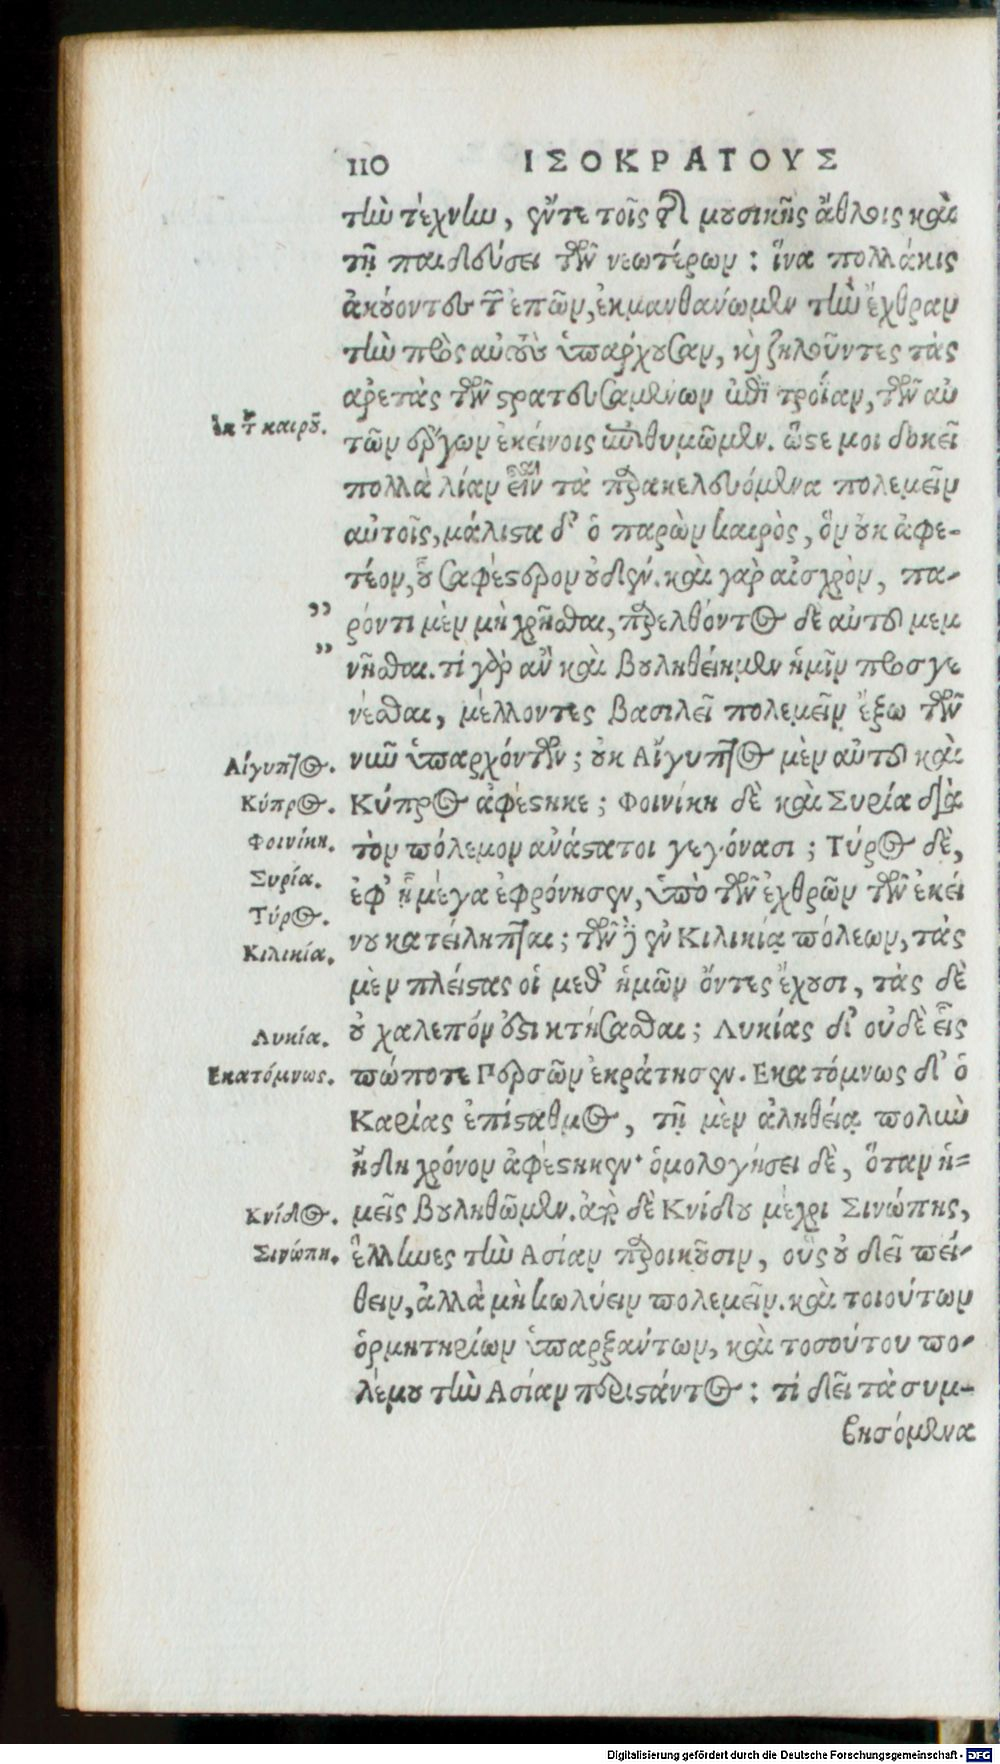 110 ΙΣΟΚΡΑΤΟΥΣ
τὴν τέχνην, ἔντε τοῖς τῆς μουσικῆς ἄθλοις καὶ
τῇ παιδεύσει τῶν νεωτέρων : ἵνα πολλάκις
ἀκούοντες τῶν ἐπῶν, ἐκμανθάνωμεν τὴν ἔχθραν
τὴν πρὸς αὐτοὺς ὑπάρχουσαν, καὶ ζηλοῦντες τὰς
ἀρετὰς τῶν στρατευσαμένων ἐπὶ τροίαν, τῶν αὐ
Ἐκ τοῦ καιροῦ.
τῶν ἔργων ἐκείνοις ἐπιθυμῶμεν. ὥστε μοι δοκεῖ
πολλὰ λίαν εἶναι τὰ παρακελευόμενα πολεμεῖν
αὐτοῖς, μάλιστα δ' ὁ παρὼν καιρὸς, ὃν οὐκ ἀφε-
τέον, οὗ σαφέστερον οὐδέν. καὶ γὰρ αἰσχρὸν, πα-
" ρόντι μὲν μὴ χρῆσθαι, παρελθόντος δὲ αὐτοῦ μεμ
" νῆσθαι. τί γὰρ ἂν καὶ βουληθείημεν ἡμῖν προσγε
νέσθαι, μέλλοντες βασιλεῖ πολεμεῖν ἔξω τῶν
Αἴγυπτος.
νῦν ὑπαρχόντων ; οὐκ Αἴγυπτος μὲν αὐτοῦ καὶ
Κύπρος.
Κύπρος ἀφέστηκε ; Φοινίκη δὲ καὶ Συρία διὰ
Φοινίκη.
τὸν πόλεμον ἀνάστατοι γεγόνασι ; Τύρος δὲ,
Συρία.
ἐφ' ᾗ μέγα ἐφρόνησεν, ὑπὸ τῶν ἐχθρῶν τῶν ἐκεί
Τύρος.
νου κατείληπται ; τῶν δὲ ἐν Κιλικίᾳ πόλεων, τὰς
Κιλικία.
μὲν πλείστας οἱ μεθ' ἡμῶν ὄντες ἔχουσι, τὰς δὲ
Λυκία.
οὐ χαλεπόν ἐστι κτήσασθαι ; Λυκίας δ' οὐδὲ εἷς
Εκατόμνως.
πώποτε Περσῶν ἐκράτησεν. Εκατόμνως δ' ὁ
Καρίας ἐπίσταθμος, τῇ μὲν ἀληθείᾳ πολὺν
ἤδη χρόνον ἀφέστηκεν· ὁμολογήσει δὲ, ὅταν ἡ-
Κνίδος.
μεῖς βουληθῶμεν. ἀπὸ δὲ Κνίδου μέχρι Σινώπης,
Σινώπη.
ἕλληνες τὴν Ασίαν παροικοῦσιν, οὓς οὐ δεῖ πεί-
θειν, ἀλλὰ μὴ κωλύειν πολεμεῖν. καὶ τοιούτων
ὁρμητηρίων ὑπαρξάντων, καὶ τοσούτου πο-
λέμου τὴν Ασίαν περιστάντος : τί δεῖ τὰ συμ-
βησόμενα
Digitalisierung gefördert durch die Deutsche Forschungsgemeinschaft - DFG